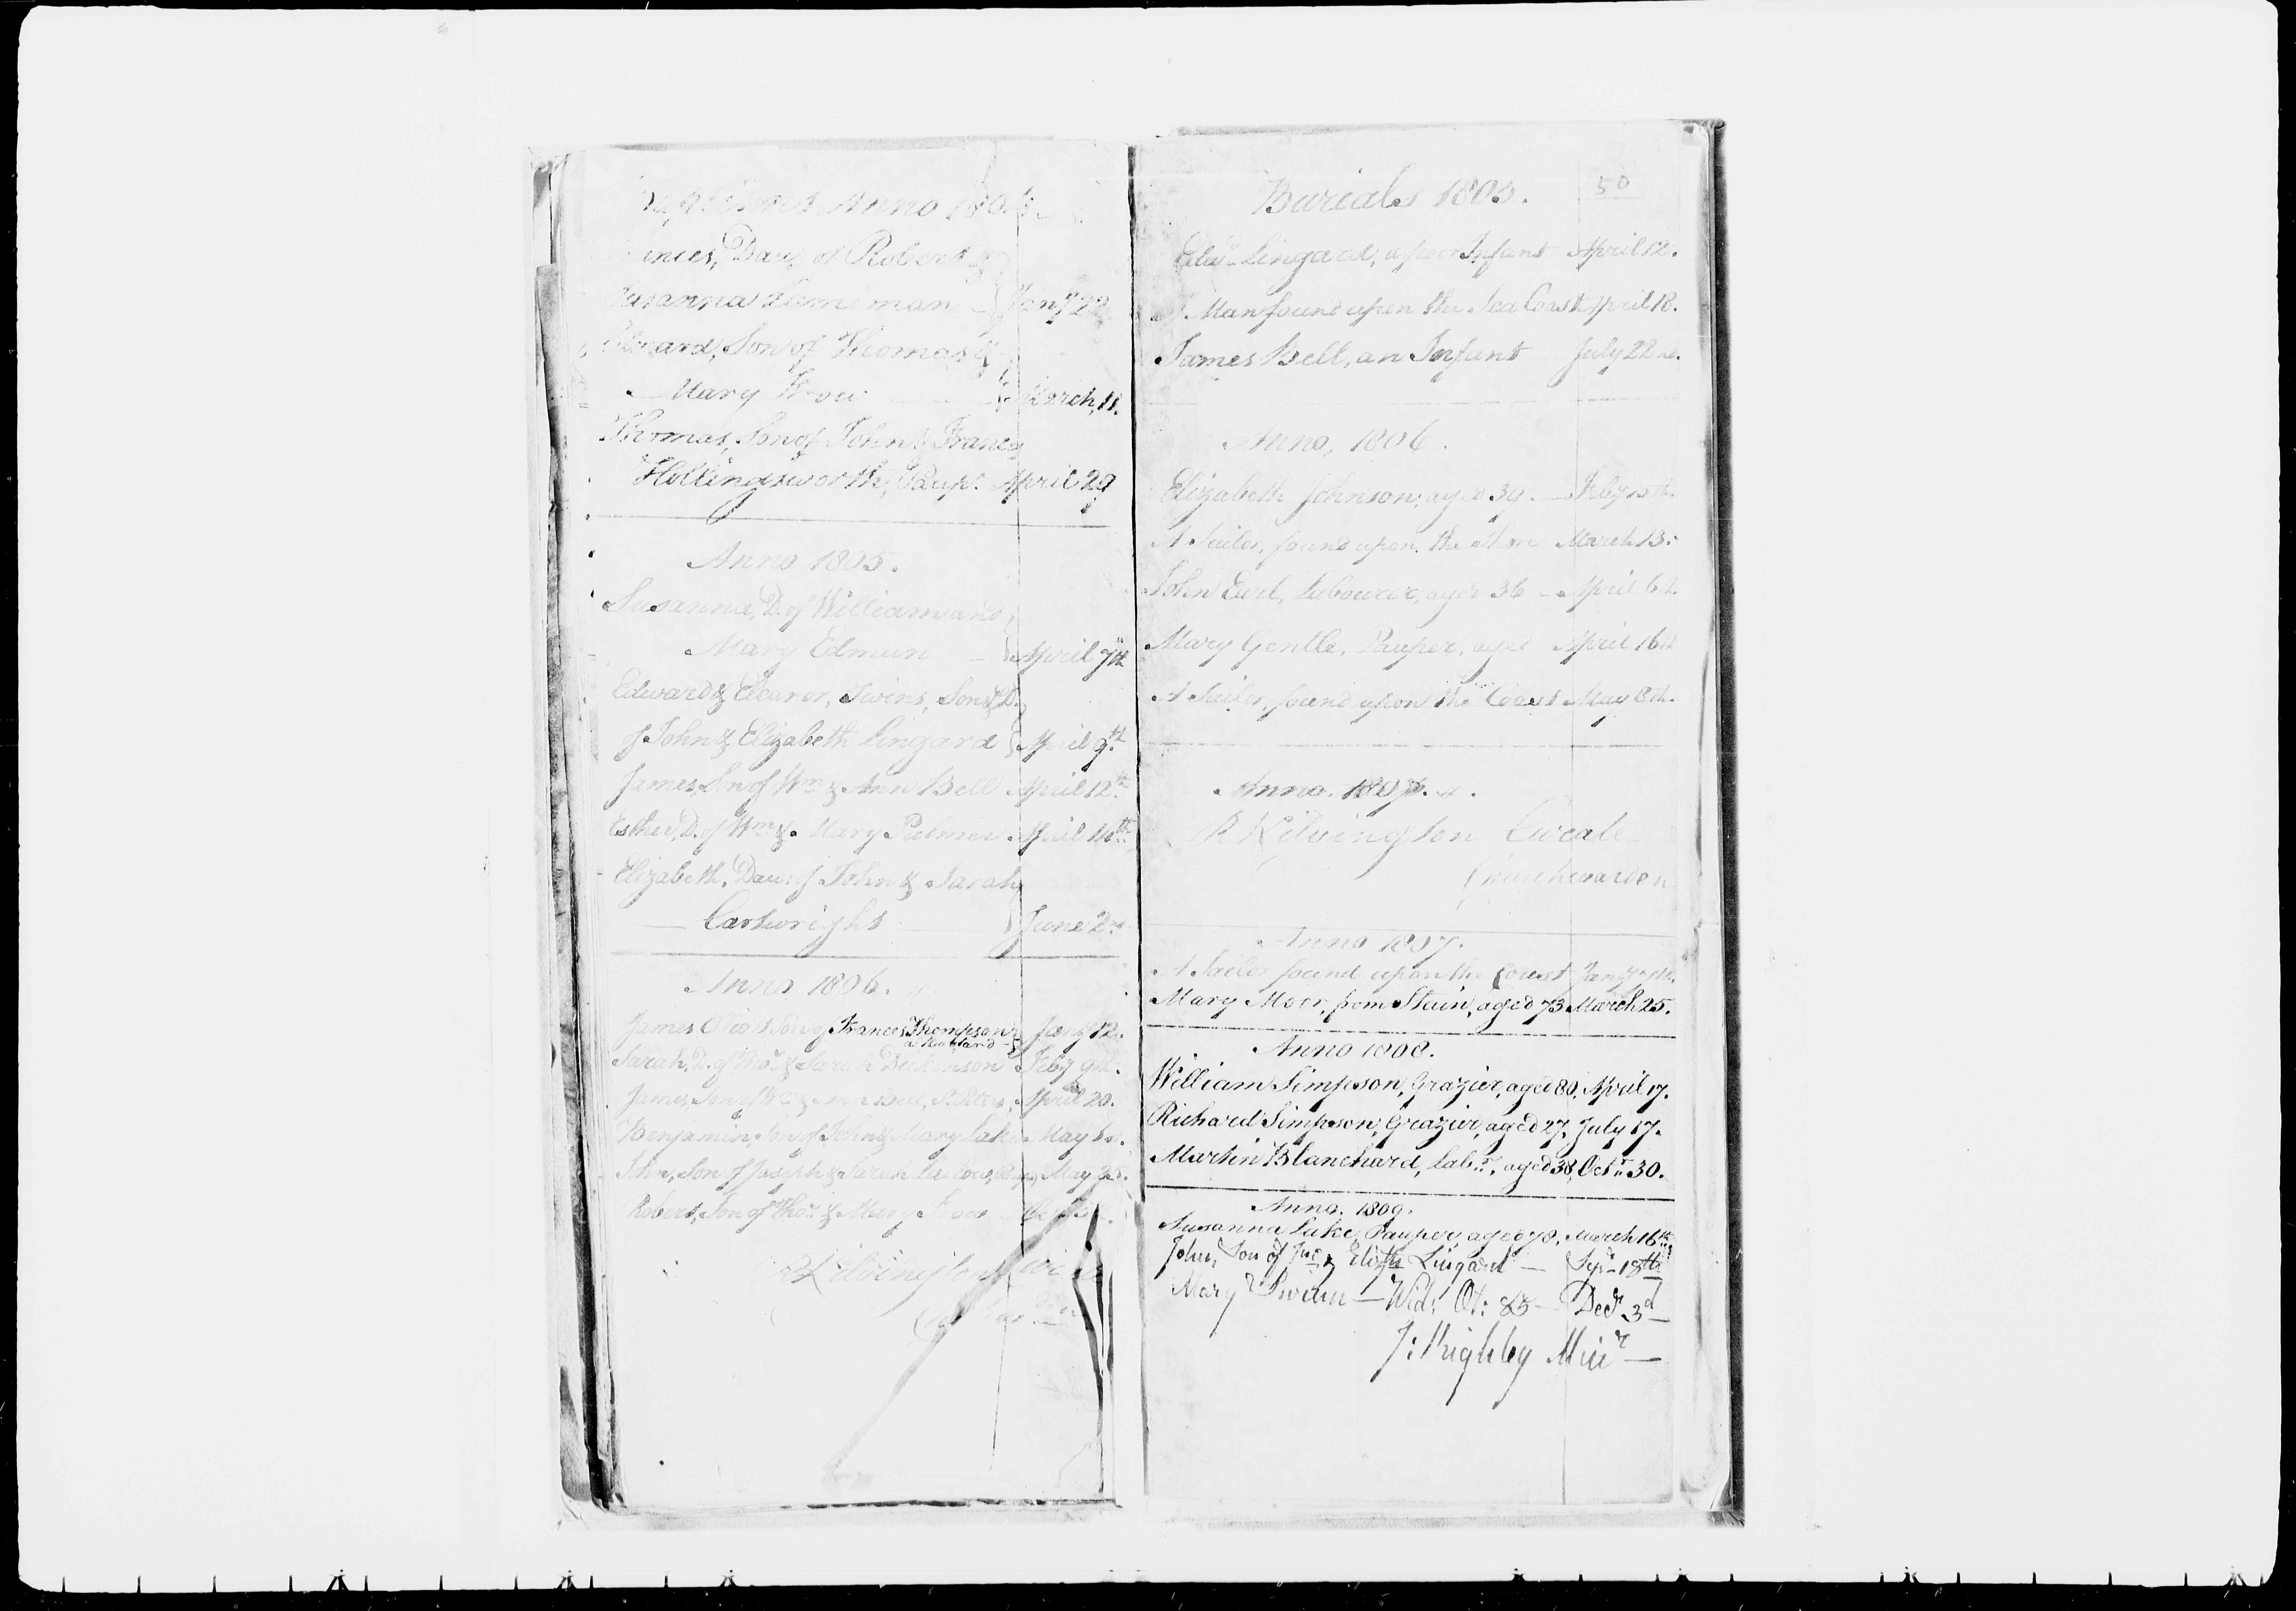 Anno 180
Dau. of Robert &
man Jany 22
Son of Thomas &
Mary Frow March 11.
Thomas, Son of John & Frances
Hollingsworth, Paupr. April 29
Anno 1805.
Susanna, D. of William and
Mary Edmun April 7th
Edward & Eleanor, Twins, Son & D.
of John & Elizabeth Lingard April 9th
James, Son of Wm & Ann Bell April 12th
Esther, D. of Wm & Mary Palmer April 14th
Elizabeth, Dau: of John & Sarah
Cartwright June 2nd
Anno 1806.
James Son of Frances Thompson Jany 12.
Sarah, D. of & Sarah Dickinson Feby 9th.
James, Son of Wm & Ann Bell, April 20.
Benjamin, Son of John & Mary Lake May
Son of Joseph & Sarah May
Robert, Son of Thos. & Mary Frow
Kilvington
Burials 1805. 50
Edwd. Lingard, a poor Infant April 12.
A Man found upon the Sea Coast April 18.
James Bell, an Infant July 22nd.
Anno, 1806.
Elizabeth Johnson, aged 39. Feby
A Sailor, found upon the Shore March 13.
John Earl, Labourer, aged 36 April 6th.
Mary Gentle, Pauper, aged April 16th
A Sailor, found upon the Coast May 8th.
Anno. 1807.
R Kilvington Curate
Churchwarden
Anno 1807.
A Sailor found upon the Coast Jany
Mary Moor, from Stain, aged 73 March 25.
Anno 1808.
William Simpson, Grazier, aged 80, April 17.
Richard Simpson, Grazier, aged 27, July 17.
Martin Blanchard, Labr., aged 38, Octr. 30.
Anno. 1809.
Susanna Lake, Pauper, aged 78, March 16th
John, Son of Jno. & Elizth Lingard — 18th
Mary Swain — Wid: 85 — Decr 3d
J: Kighley Minr —